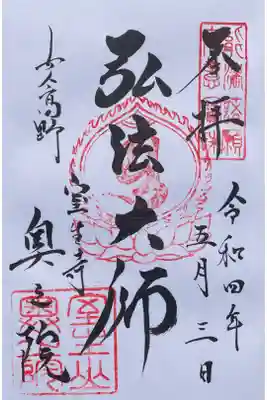 奉拝
令和四年
五月三日
弘法大師
女人高野
室生寺
奥之院
室生山
奥之院